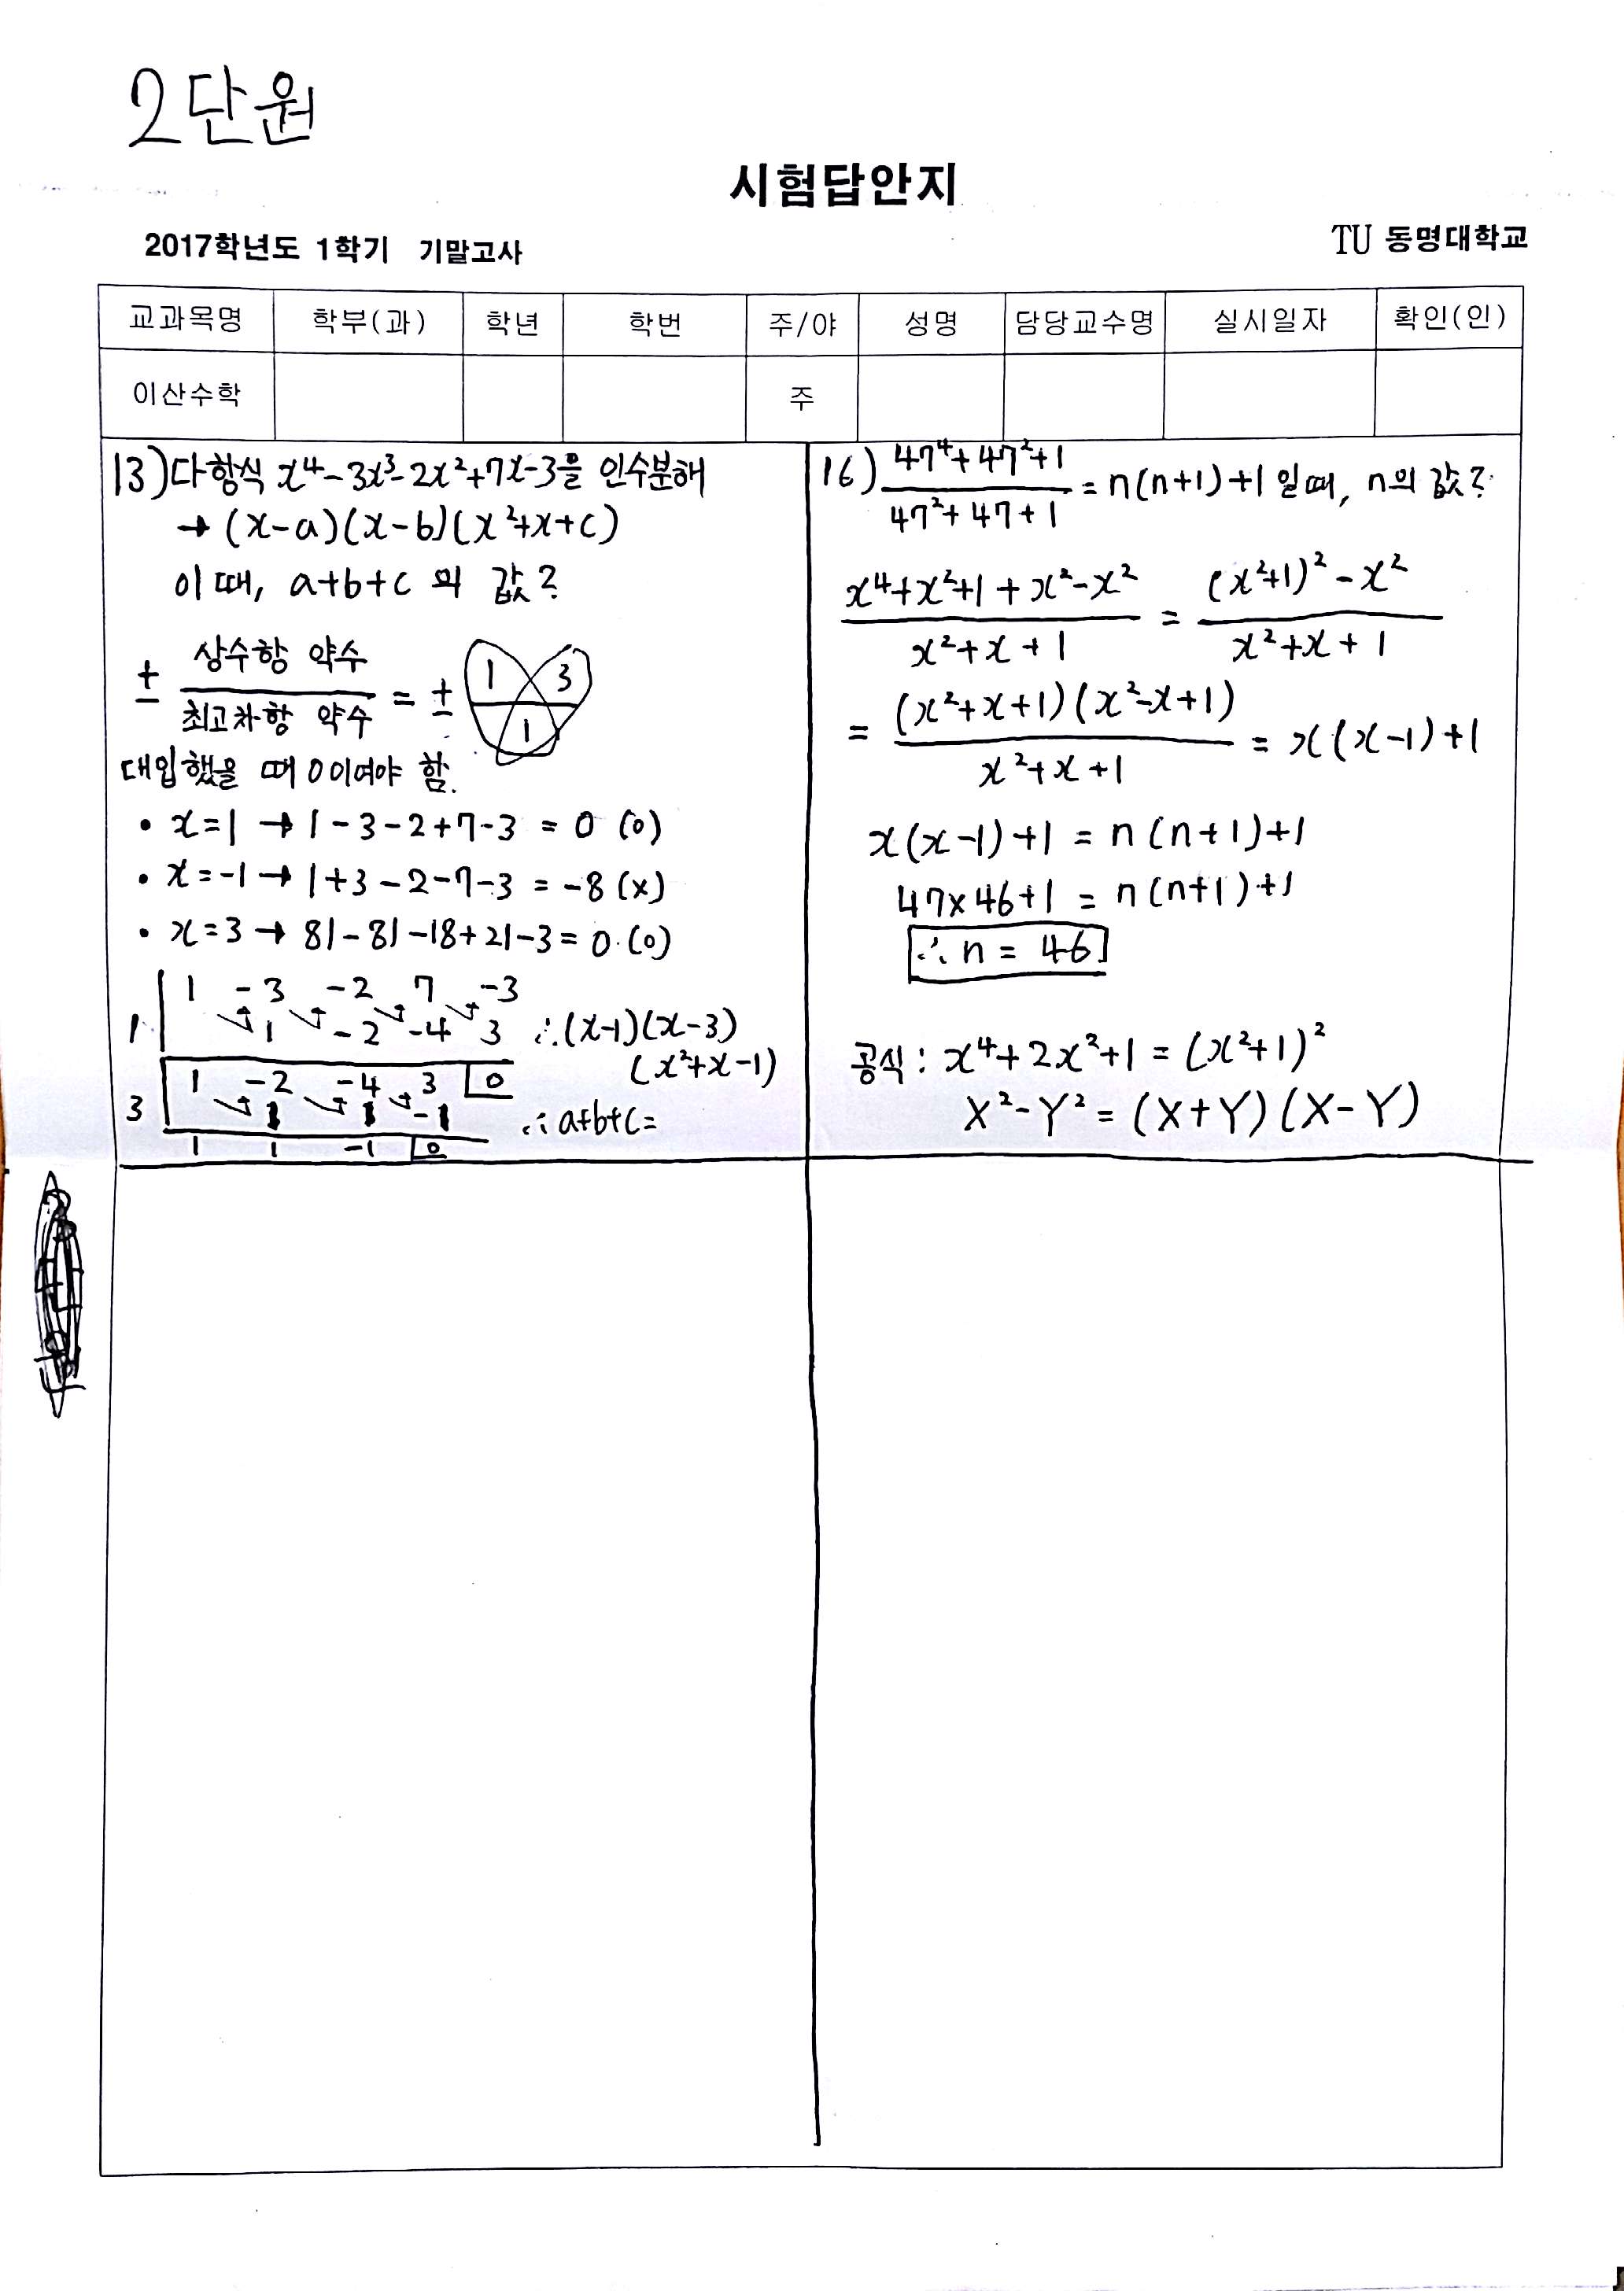 2단원
시험답안지
2017학년도 1학기 기말고사
TU 동명대학교
교과목명 학부(과) 학년 학번 주/야 성명 담당교수명 실시일자 확인(인)
이산수학 주
13) 다항식 x⁴-3x³-2x²+7x-3을 인수분해
→ (x-a)(x-b)(x²+x+c)
이때, a+b+c의 값?
± 상수항 약수 / 최고차항 약수 = ± 1 3 / 1
대입했을 때 0이여야 함.
• x=1 → 1-3-2+7-3 = 0 (o)
• x=-1 → 1+3-2-7-3 = -8 (x)
• x=3 → 81-81-18+21-3 = 0 (o)
1 -3 -2 7 -3
1 1 -2 -4 3 ∴(x-1)(x-3)
(x²+x-1)
1 -2 -4 3 0
3 1 -1 ∴a+b+c=
1 1 -1 0
16) 47⁴+47²+1 / 47²+47+1 = n(n+1)+1 일때, n의 값?
x⁴+x²+1+x²-x² / x²+x+1 = (x²+1)²-x² / x²+x+1
= (x²+x+1)(x²-x+1) / x²+x+1 = x(x-1)+1
x(x-1)+1 = n(n+1)+1
47×46+1 = n(n+1)+1
∴ n = 46
공식: x⁴+2x²+1 = (x²+1)²
X²-Y² = (X+Y)(X-Y)